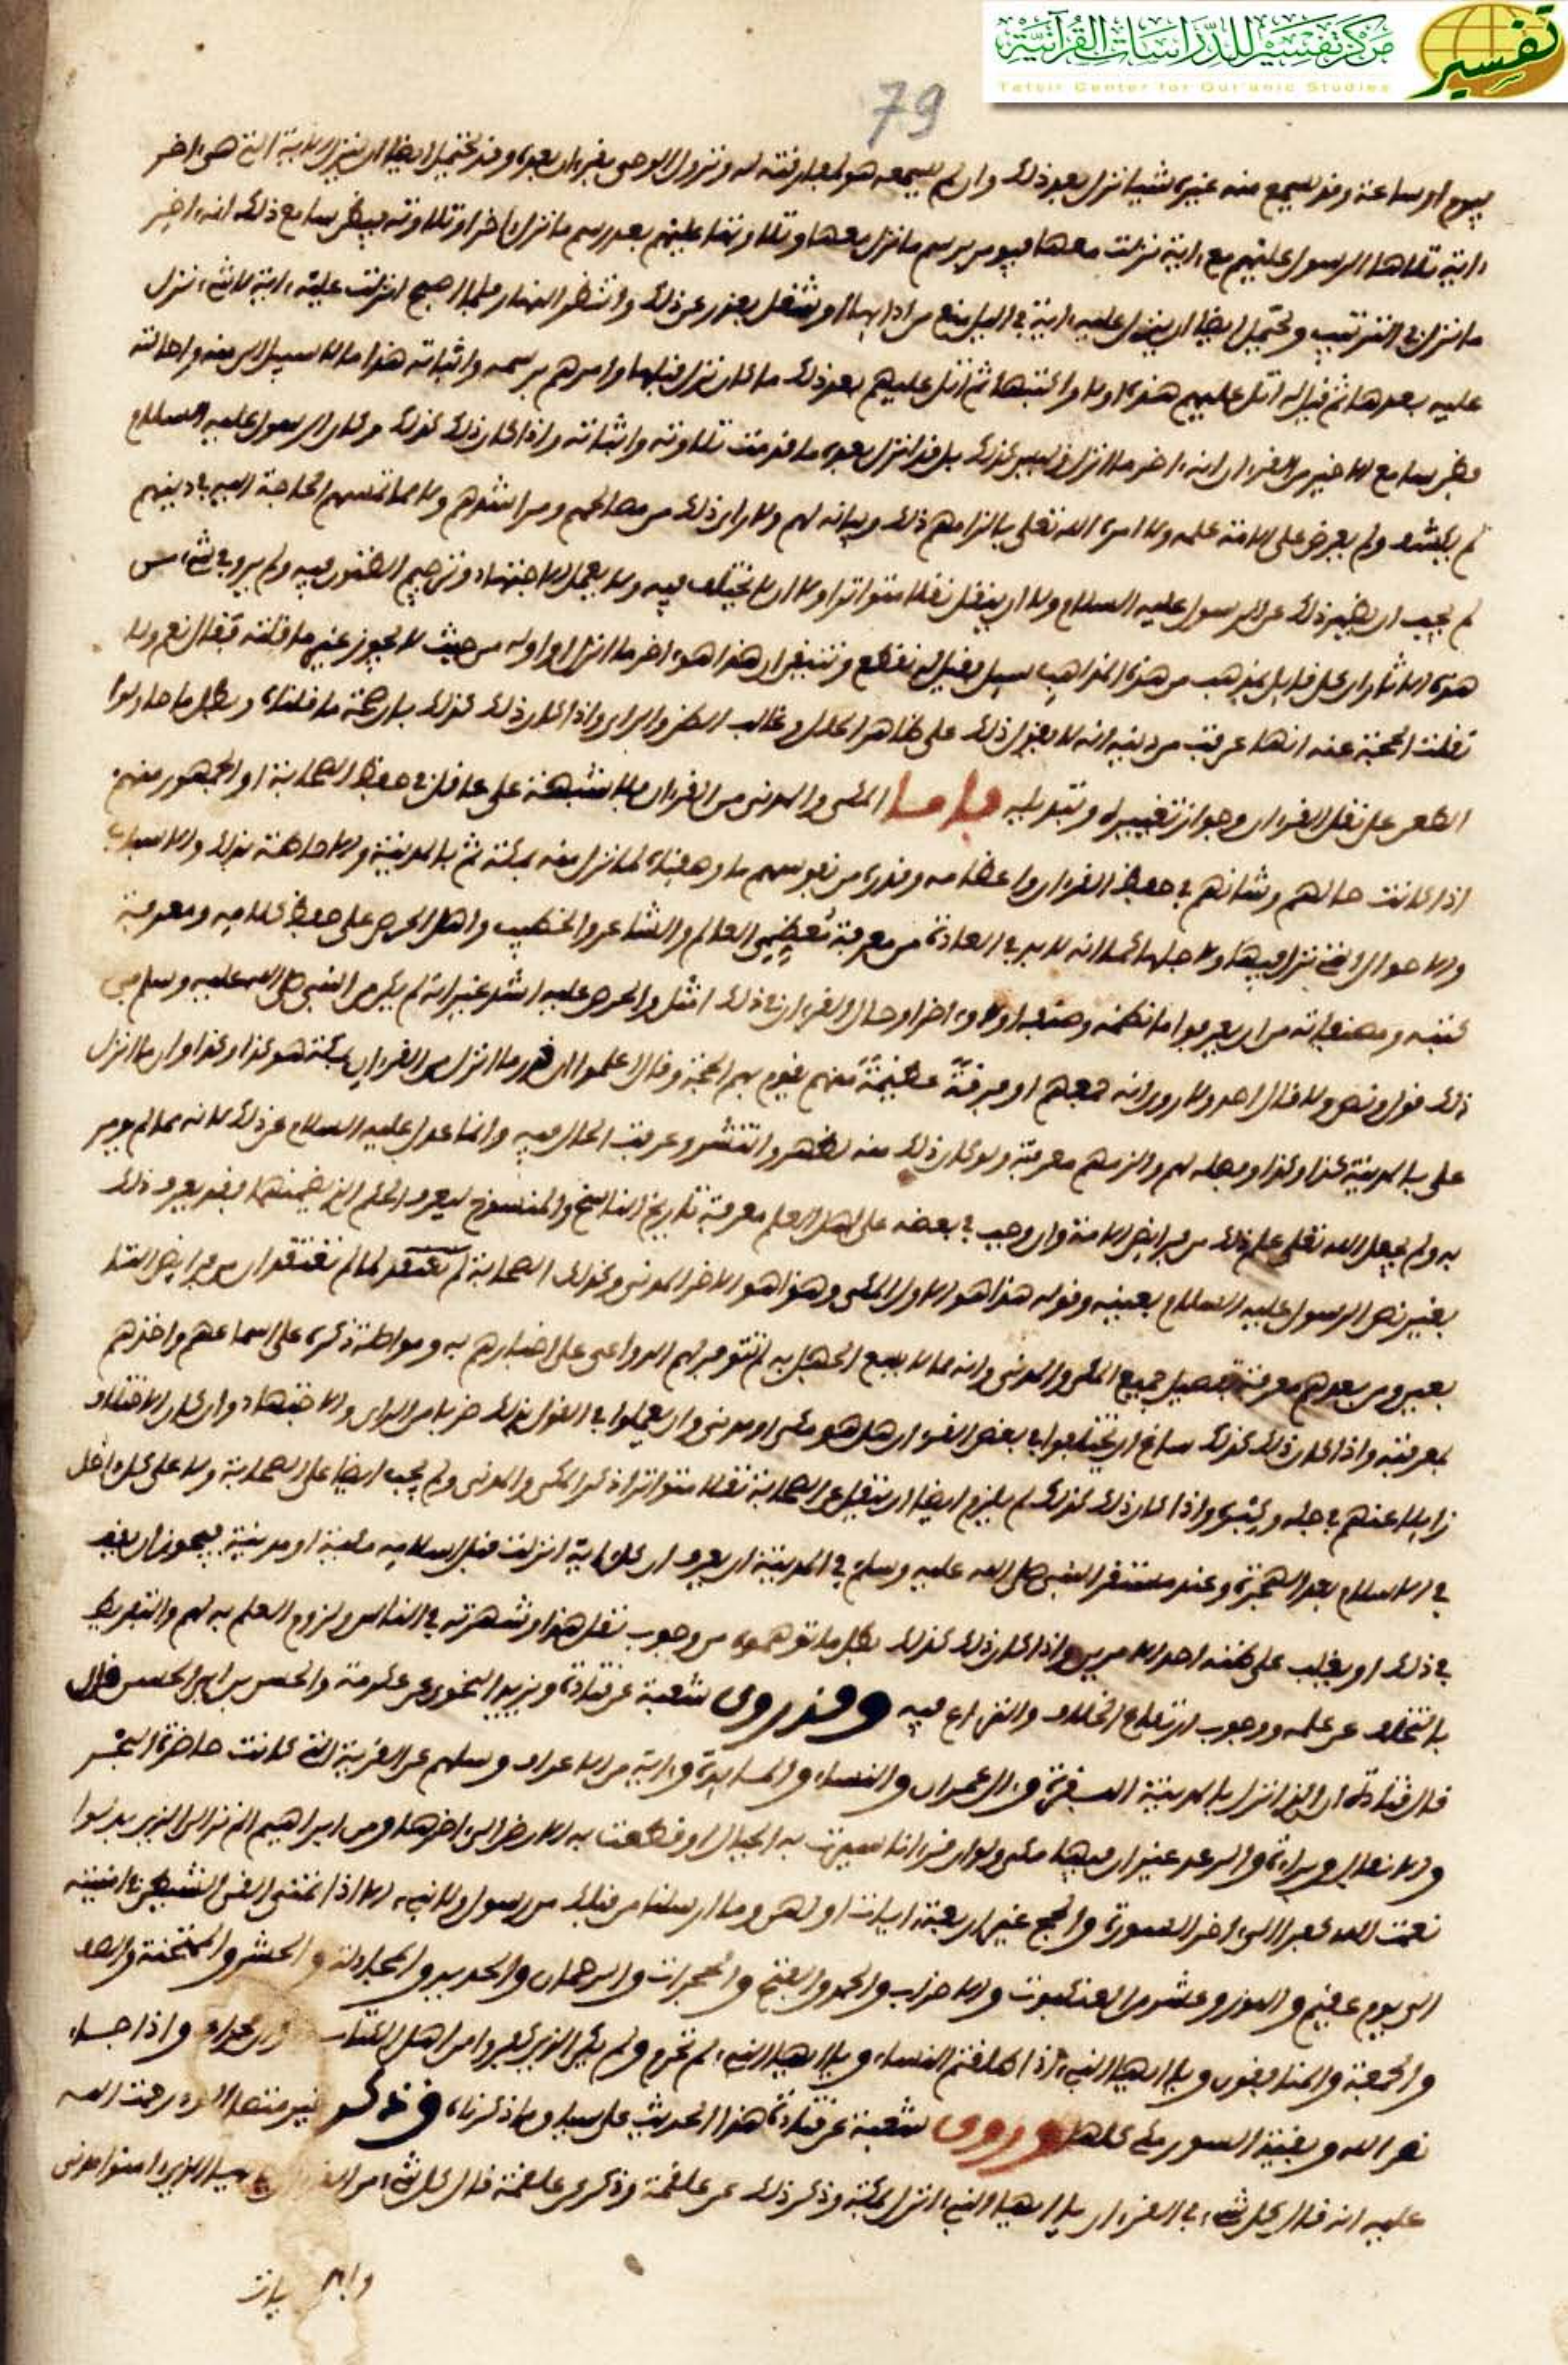 مركز تفسير للدراسات القرآنية
Tafsir Center for Qur'anic Studies
تفسير
79
يوم او ساعة وقد سمع منه غيره شيا نزل بعد ذلك وان لم يسمعه هو لمفارقته له ونزول الوحي بقرءان بعده وقد يحتمل ايضا ان تنزل الاية التي هي اخر
ءاية تلاها الرسول عليهم مع ءاية نزلت معها فيومر برسم ما نزل معها وتلاوتها عليهم بعد رسم ما نزل ءاخرا وتلاوته فيظن سامع ذلك انه ءاخر
ما نزل في الترتيب ويحتمل ايضا ان ينزل عليه ءاية في الليل يمنع من ادايها او شغل يعذر عن ذلك وانتظر النهار فلما اصبح انزلت عليه ءاية لا شيء نزل
عليه بعدها ثم قيل له اتل عليهم هذه اولا واكتبها ثم اتل عليهم بعد ذلك ما كان نزل قبلها وامرهم برسمه واثباته هذا ما لا سبيل الى منعه واحالته
فظن سامع الاخير من القرءان انه ءاخر ما انزل وليس كذلك بل قد انزل بعده ما قدمت تلاوته واثباته واذا كان ذلك كذلك وكان الرسول عليه السلام
لم يكشف ولم يعرض على الامة علمه ولا امره الله تعلى بالزامهم ذلك وبيانه لهم ولا راى ذلك من مصالحهم ومراشدهم ولا مما تمسهم الحاجة اليه في دينهم
لم يجب ان يظهر ذلك عن الرسول عليه السلام ولا ان ينقل نقلا متواترا ولا ان لا يختلف فيه ولا يعمل الاجتهاد وترجيح الظنون فيه ولم يرو في شيء من
هذه الاثار ان كل قايل بمذهب من هذه المذاهب سيل فقيل له تقطع وتتيقن ان هذا هو ءاخر ما انزل او اوله من حيث لا يجوز غير ما قلته فقال نعم ولا
نقلت الحجة عنه انها عرفت من دينه انه لا يقول ذلك على ظاهر الحال وغالب الظن والراي واذا كان ذلك كذلك بان صحة ما قلناه وبطل ما حاولوا
الطعن على نقل القرءان وجواز تغييره وتبديله فاما المكي والمدني من القرءان فلا شبهة على عاقل في حفظ الصحابة او الجمهور منهم
اذا كانت حالهم وشانهم في حفظ القرءان واعظامه وقدره من نفوسهم ما وصفناه لما نزل منه بمكة ثم بالمدينة والاحاطة بذلك والاسباب
والاحوال التي نزل فيها ولاجلها كما انه لا بد في العادة من معرفة تعظيمي العالم والشاعر والخطيب واهل الحرص على حفظ كلامه ومعرفة
كتبه ومصنفاته من ان يعرفوا ما نظمه وصنفه اولا وءاخرا وحال القرءان في ذلك امثل والحرص عليه اشد غير انه لم يكن من النبي صلى الله عليه وسلم في
ذلك قول ونص ولا قال احد ولا روى انه جمعهم او فرقة عظيمة منهم تقوم بهم الحجة وقال اعلموا ان قدر ما انزل من القرءان بمكة هو كذا وكذا وان ما انزل
علي بالمدينة كذا وكذا وفصله لهم والزمهم معرفته ولو كان ذلك منه لظهر وانتشر وعرفت الحال فيه وانما عدل عليه السلام عن ذلك لانه مما لم يومر
به ولم يجعل الله تعلى علم ذلك من فرايض الامة وان وجب في بعضه على اهل العلم معرفة تاريخ الناسخ والمنسوخ ليعرف الحكم الذي يضمنها فقد يعرف ذلك
بغير نص الرسول عليه السلام بعينه وقوله هذا هو الاول المكي وهذا هو الاخر المدني وكذلك الصحابة لم تعتقد لما لم تعتقد ان من فرايض التا
بعين ومن بعدهم معرفة تفصيل جميع المكي والمدني وانه مما لا يسع الجهل به لم تتوفر لهم الدواعي على اخبارهم به ومواصلة ذكره على اسماعهم واخذهم
بمعرفته واذا كان ذلك كذلك ساغ ان يختلفوا في بعض القرءان هل هو مكي او مدني وان يعملوا في القول بذلك ضربا من الراي والاجتهاد وان كان الاختلاف
زايلا عنهم في جله وكثيره واذا كان ذلك كذلك لم يلزم ايضا ان ينقل عن الصحابة نقلا متواترا ذكر المكي والمدني ولم يجب ايضا على الصحابة ولا على كل داخل
في الاسلام بعد الهجرة وعند مستقر النبي صلى الله عليه وسلم في المدينة ان يعرف ان كل ءاية انزلت قبل اسلامه مكية او مدنية فيجوز ان يقف
في ذلك او يغلب على ظنه احد الامرين واذا كان ذلك كذلك بطل ما توهموه من وجوب نقل هذا وشهرته في الناس ولزوم العلم به لهم والتفريط
بالتخلف عن علمه ووجوب ارتفاع الخلاف والنزاع فيه وقد روى شعبة عن قتادة ويزيد النحوي عن عكرمة والحسن بن ابي الحسن قال
قال قتادة ان الذي انزل بالمدينة البقرة وءال عمران والنساء والمايدة وءاية من الاعراف وسلهم عن القرية التي كانت حاضرة البحر
والانفال وبراءة والرعد غير ان فيها مكي ولو ان قرءانا سيرت به الجبال او قطعت به الارض الى ءاخرها ومن ابراهيم الم تر الى الذين بدلوا
نعمت الله كفرا الى ءاخر السورة والحج غير اربعة ءايات اولهن وما ارسلنا من قبلك من رسول ولا نبيء الا اذا تمنى القى الشيطن في امنيته
الى يوم عقيم والنور وعشر من العنكبوت والاحزاب والحمد والفتح والحجرات والرحمان والحديد والمجادلة والحشر والممتحنة والصف
والجمعة والمنافقون ويا ايها النبيء اذا طلقتم النساء ويا ايها النبيء لم تحرم ولم يكن الذين كفروا من اهل الكتاب واذا جاء
نصر الله وبقية السور مكي كلها وروى شعبة عن قتادة هذا الحديث على سياق ما ذكرناه وذكر رحمت الله
عليه انه قال كل شيء في القرءان يا ايها الناس انزل بمكة وذكر ذلك عن علقمة وذكر عن علقمة قال كل شيء من القرءان يا ايها الذين امنوا مدني